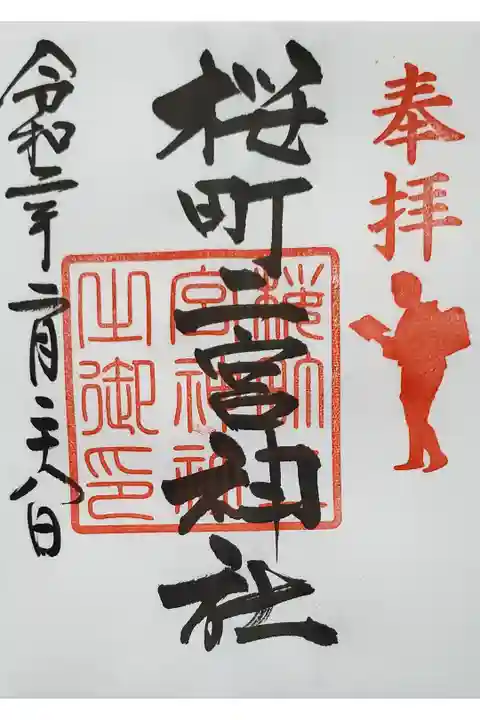 奉拝
桜町二宮神社
桜町二
宮神社
之御印
令和二年二月二十八日